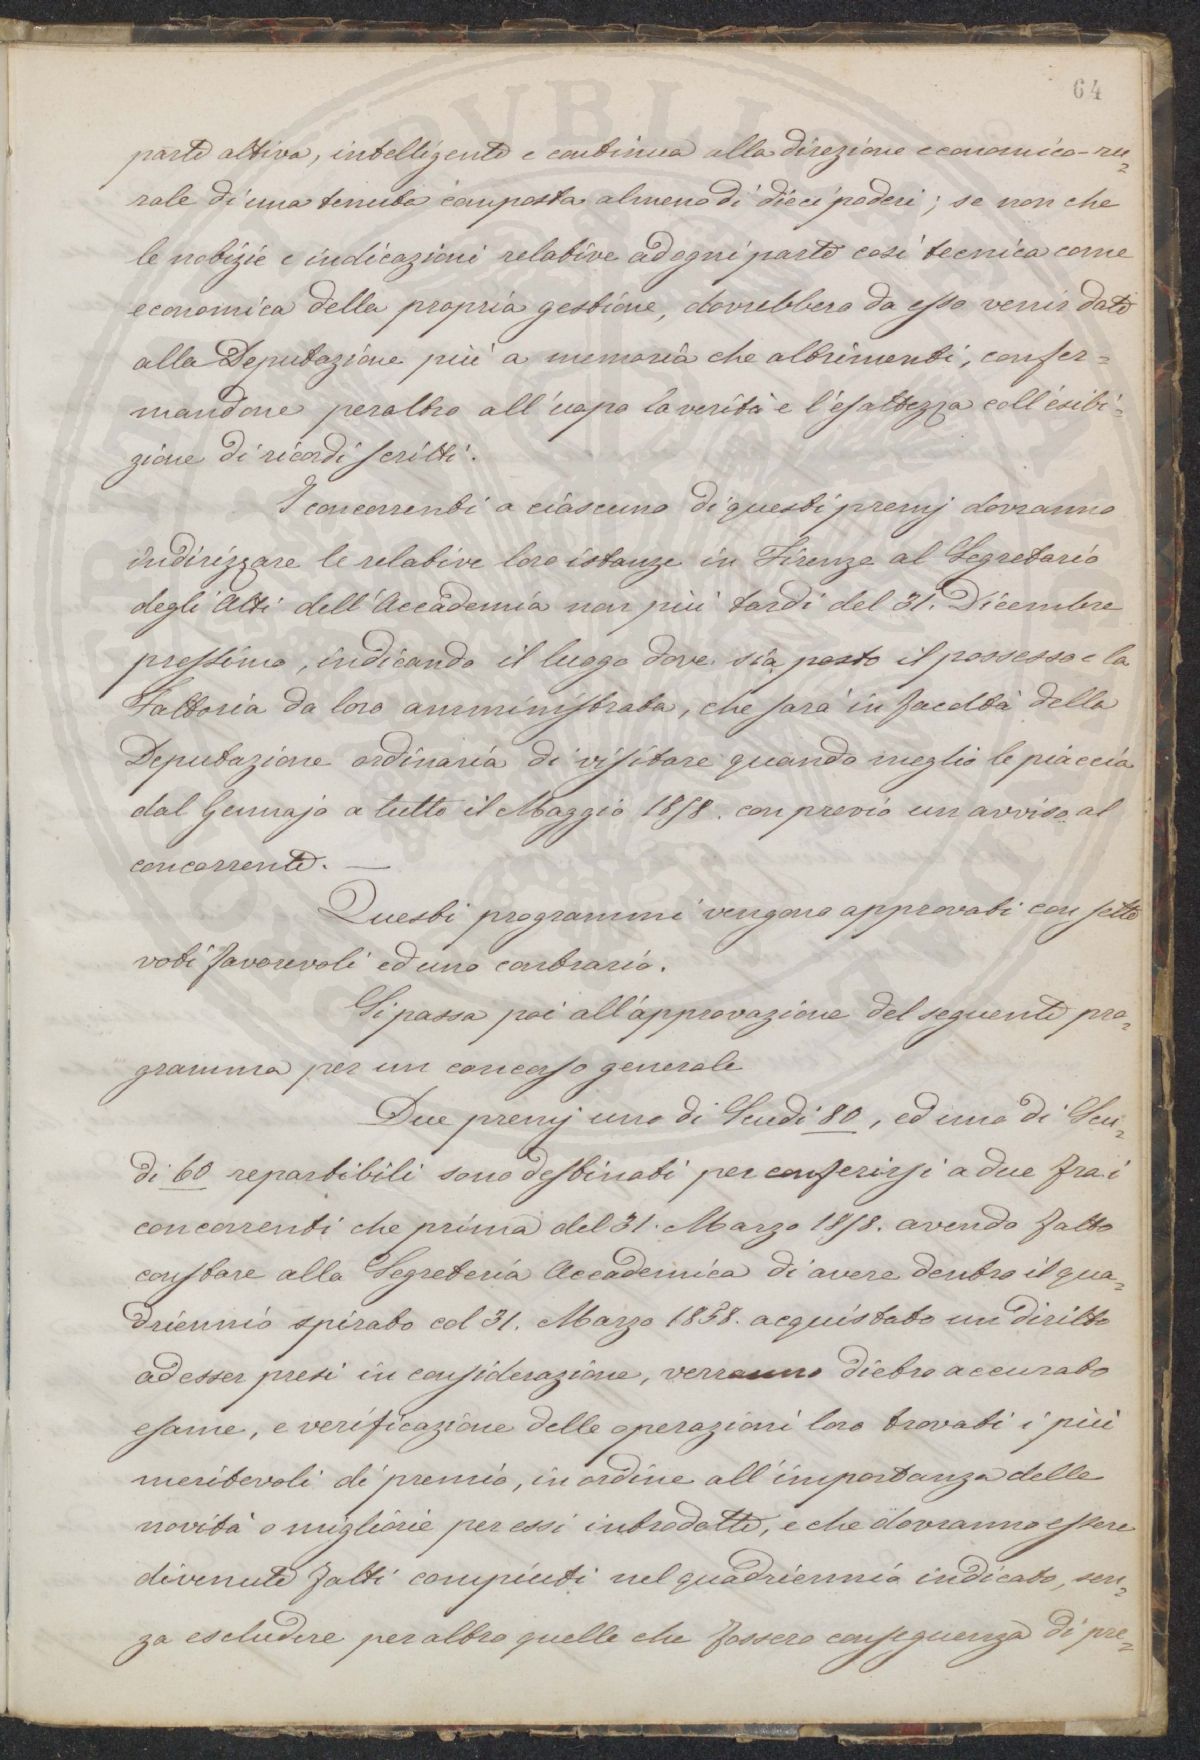 64
parte attiva, intelligente e continua alla direzione economico-ru=
rale di una tenuta composta almeno di dieci poderi; se non che
le notizie e indicazioni relative ad ogni parte così tecnica come
economica della propria gestione, dovrebbero da esso venir date
alla Deputazione più a memoria che altrimenti, confer=
mandone peraltro all'uopo la verità e l'esattezza coll'esibi=
zione di ricordi scritti.
I concorrenti a ciascuno di questi premj dovranno
indirizzare le relative loro istanze in Firenze al Segretario
degli Atti dell'Accademia non più tardi del 31. Dicembre
prossimo, indicando il luogo dove sia posto il possesso e la
Fattoria da loro amministrata, che sarà in facoltà della
Deputazione ordinaria di visitare quando meglio le piaccia
dal Gennajo a tutto il Maggio 1858. con previo un avviso al
concorrente. —
Questi programmi vengono approvati con sette
voti favorevoli ed uno contrario.
Si passa poi all'approvazione del seguente pro=
gramma per un concorso generale
Due premj uno di Scudi 80, ed uno di Scu=
di 60 repartibili sono destinati per conferirsi a due fra i
concorrenti che prima del 31. Marzo 1858. avendo fatto
constare alla Segreteria Accademica di avere dentro il qua=
driennio spirato col 31. Marzo 1858. acquistato un diritto
ad esser presi in considerazione, verranno dietro accurato
esame, e verificazione delle operazioni loro trovati i più
meritevoli di premio, in ordine all'importanza delle
novità o migliorie per essi introdotte, e che dovranno essere
divenute fatti compiuti nel quadriennio indicato, sen=
za escludere peraltro quelle che fossero conseguenza di pre=